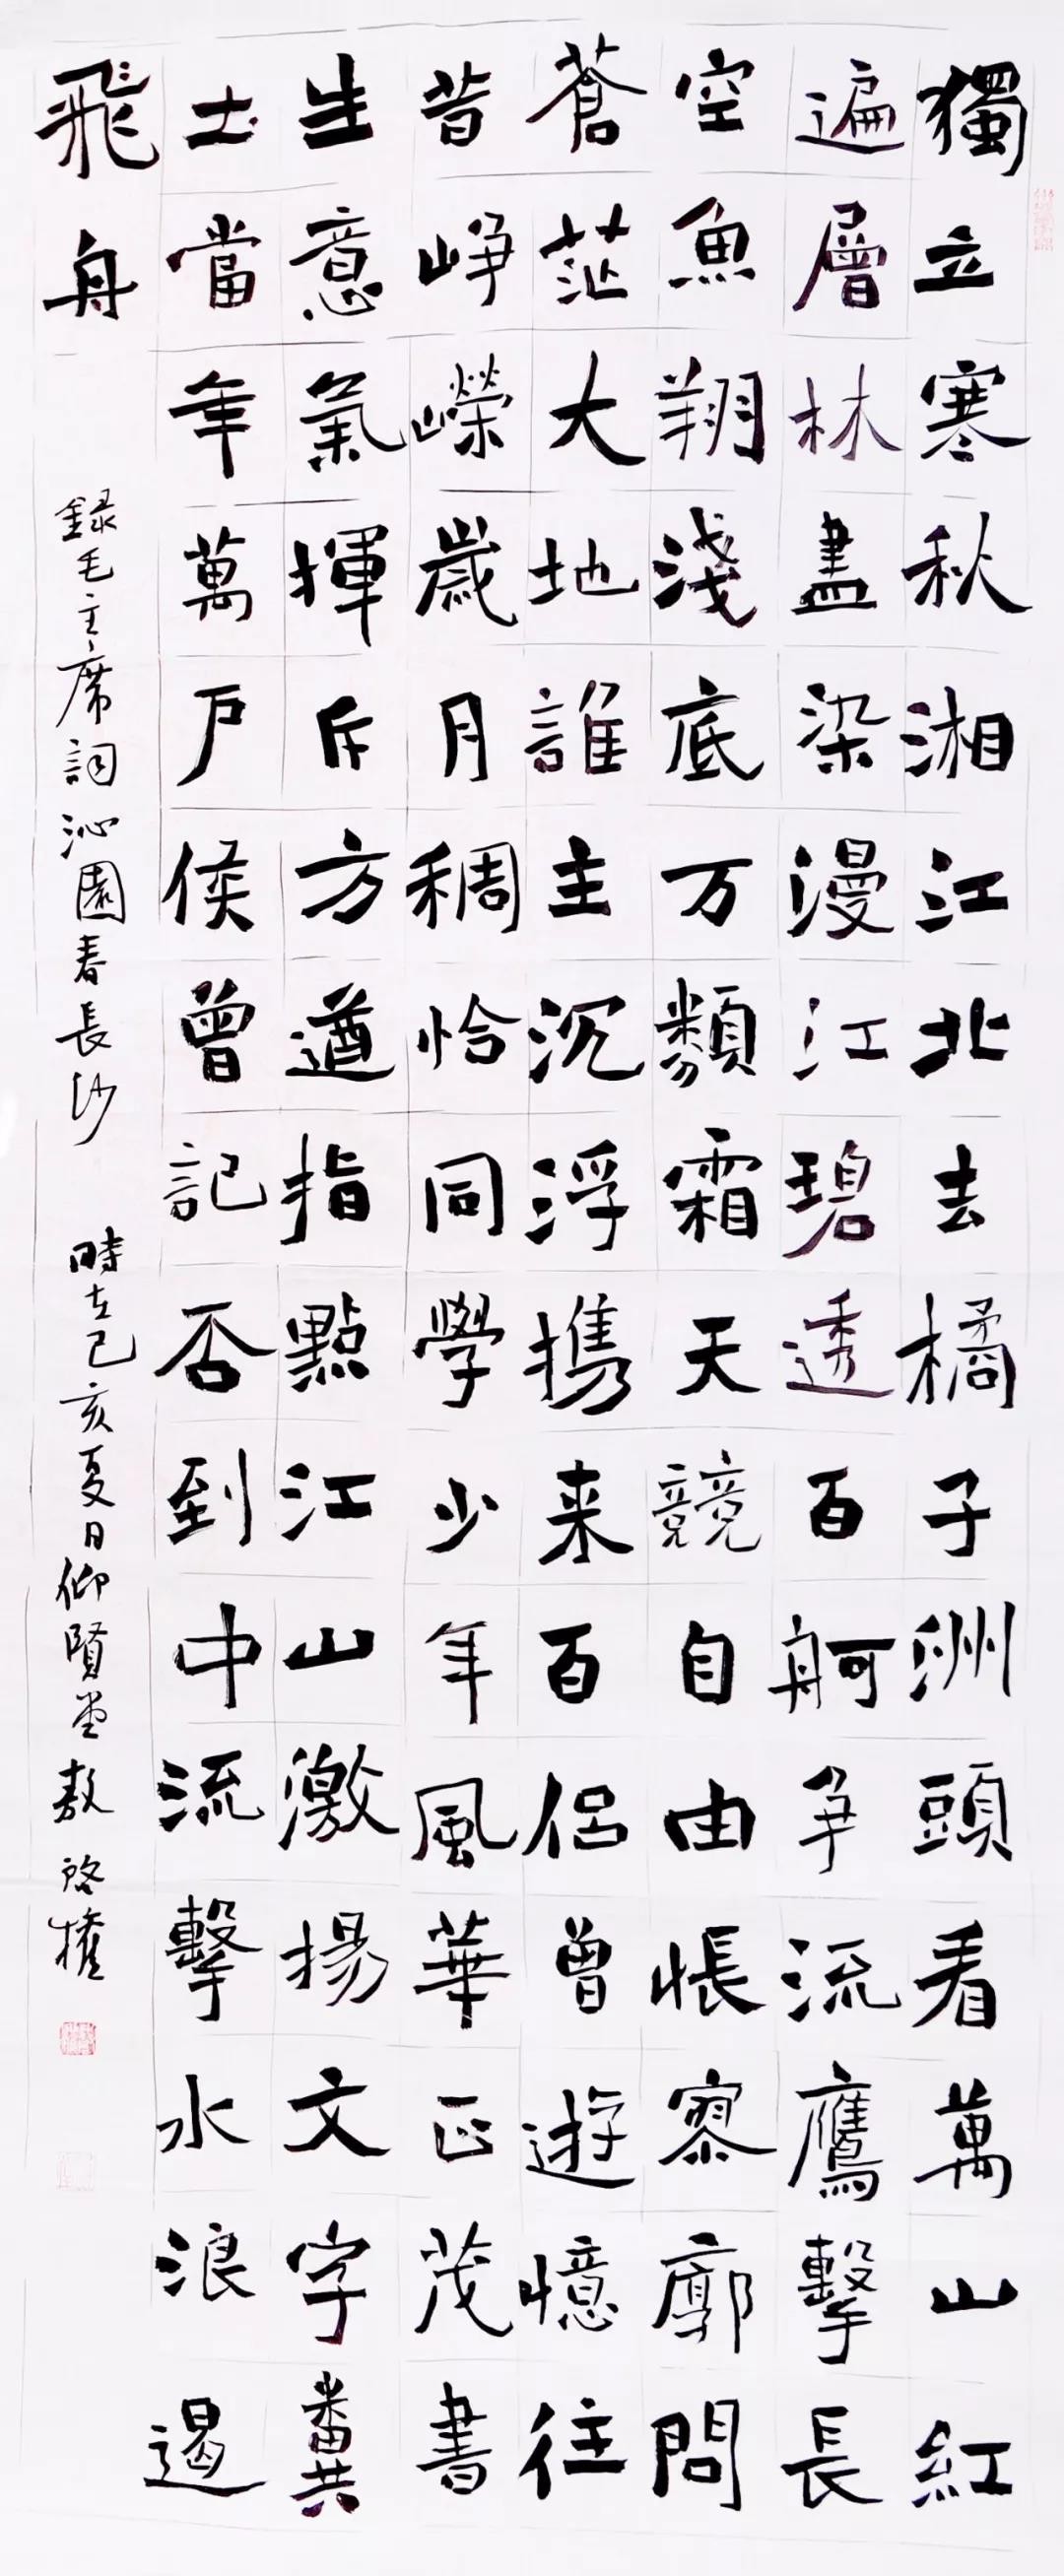 獨立寒秋湘江北去橘子洲頭看萬山紅
遍層林盡染漫江碧透百舸争流鷹擊長
空魚翔淺底万類霜天競自由悵寥廓問
蒼茫大地誰主沉浮携来百侣曾遊憶往
昔崢嶸歲月稠恰同學少年風華正茂書
生意氣揮斥方遒指點江山激揚文字糞
土當年萬户侯曾記否到中流擊水浪遏
飛舟
録毛主席詞沁園春長沙 時在己亥夏日仰賢堂敖啓